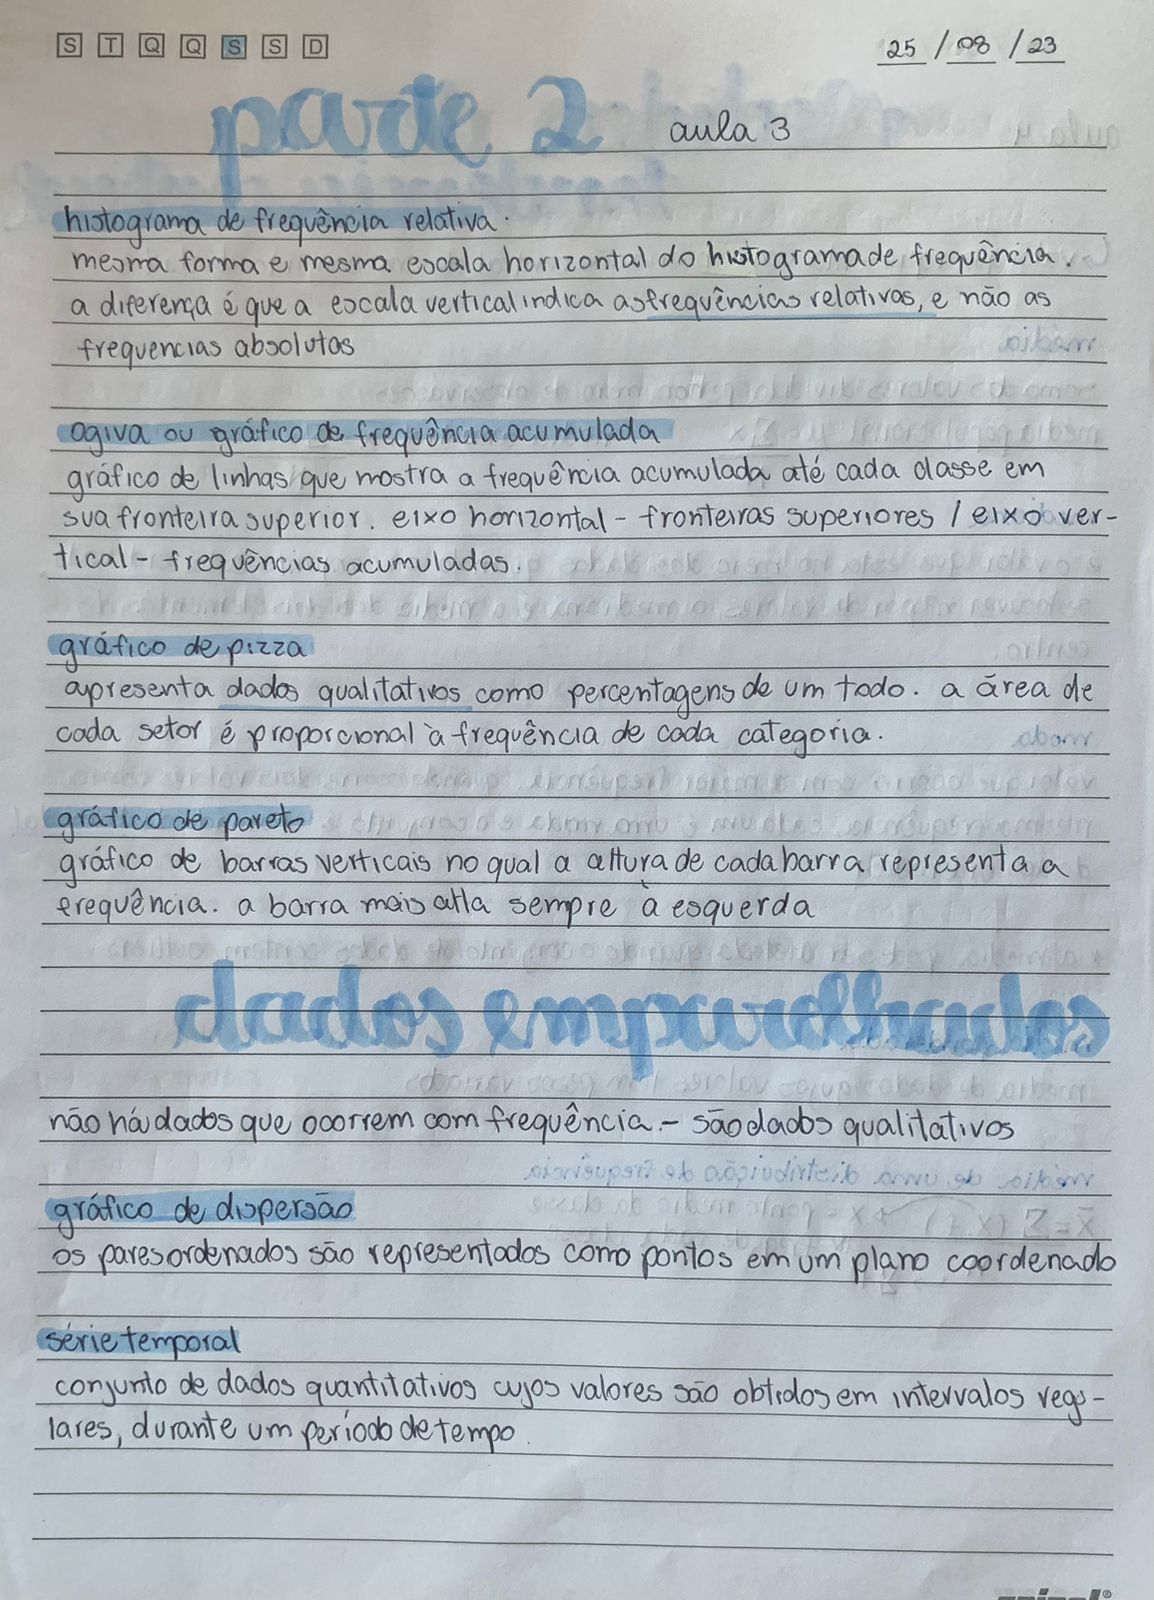 S T Q Q S S D
25 / 08 / 23
parte 2 aula 3
histograma de frequência relativa.
mesma forma e mesma escala horizontal do histograma de frequência.
a diferença é que a escala vertical indica as frequências relativas, e não as
frequencias absolutas
ogiva ou gráfico de frequência acumulada
gráfico de linhas que mostra a frequência acumulada até cada classe em
sua fronteira superior. eixo horizontal - fronteiras superiores / eixo ver-
tical - frequências acumuladas.
gráfico de pizza
apresenta dados qualitativos como percentagens de um todo. a área de
cada setor é proporcional à frequência de cada categoria.
gráfico de pareto
gráfico de barras verticais no qual a altura de cada barra representa a
frequência. a barra mais alta sempre à esquerda
dados emparelhados
não há dados que ocorrem com frequência - são dados qualitativos
gráfico de dispersão
os pares ordenados são representados como pontos em um plano coordenado
série temporal
conjunto de dados quantitativos cujos valores são obtidos em intervalos regu-
lares, durante um período de tempo.